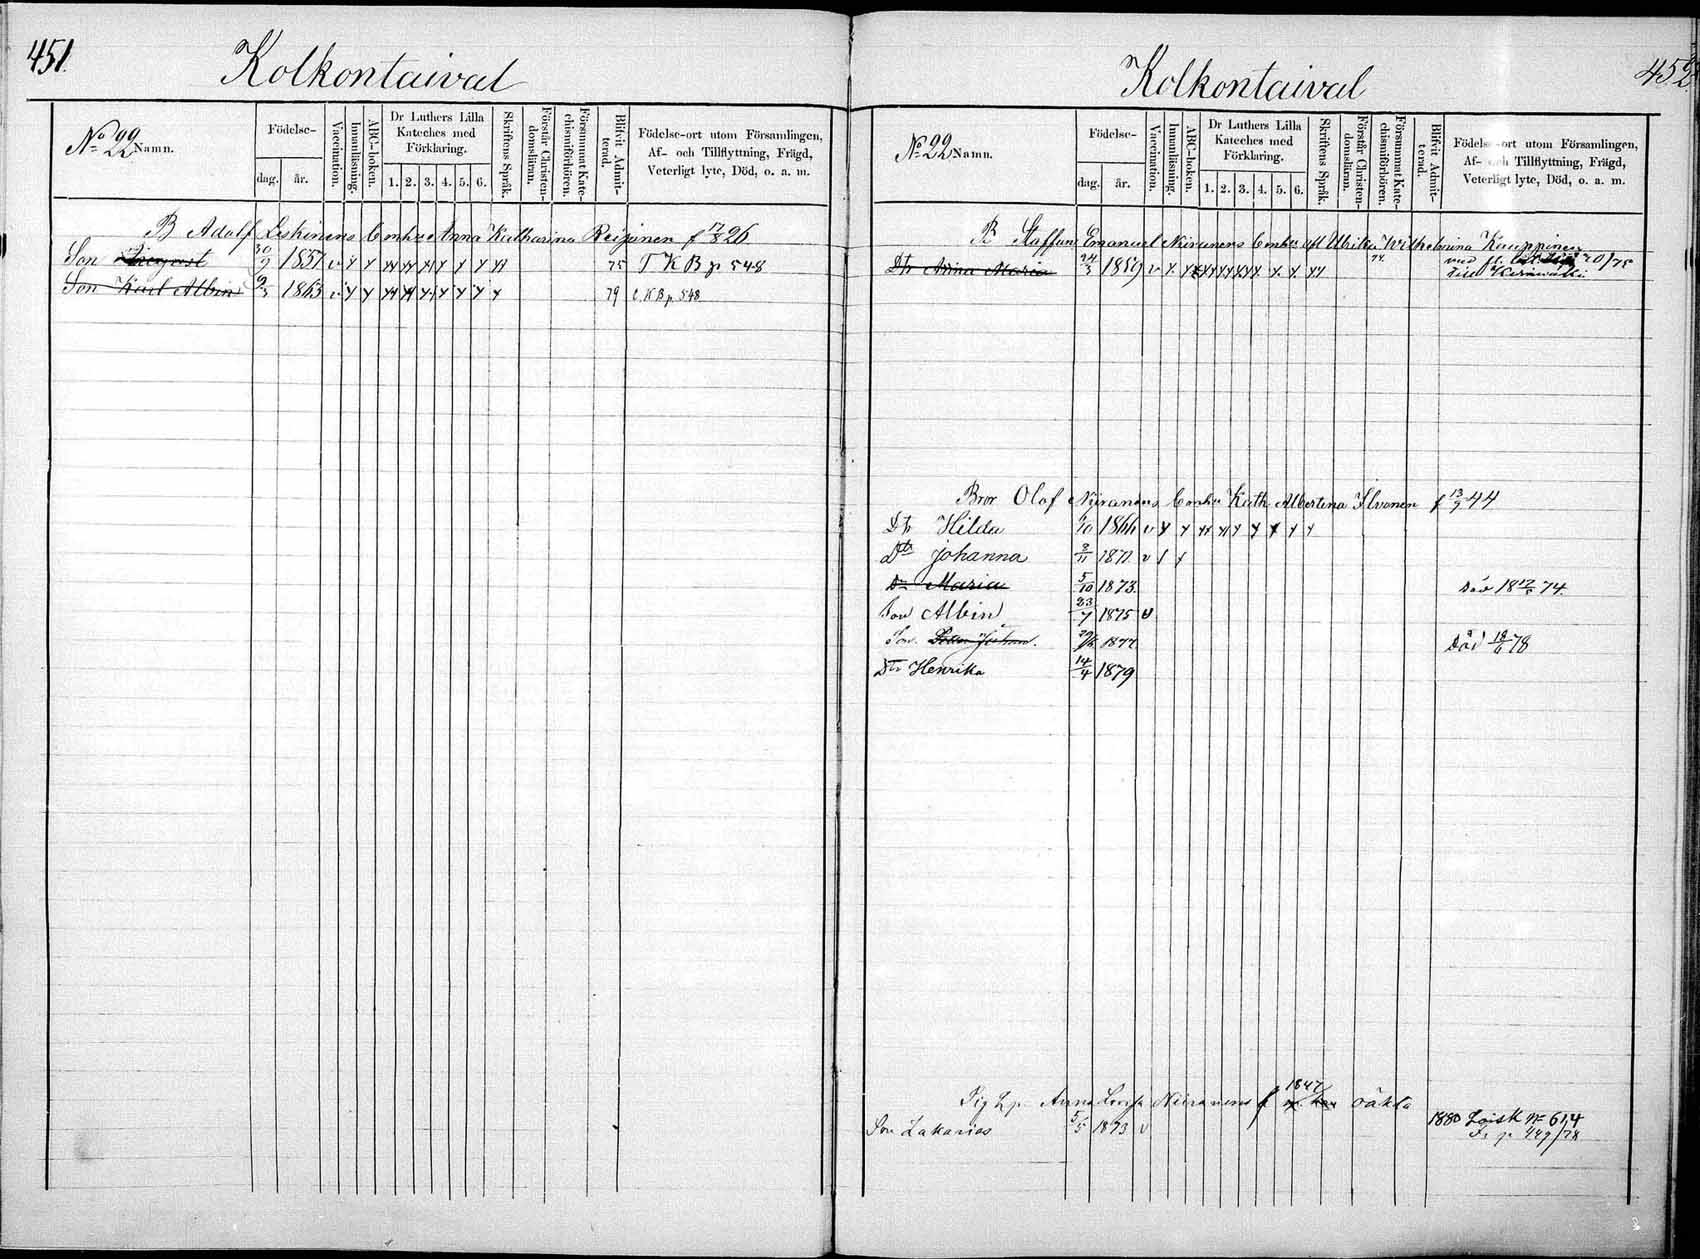 451.
Kolkontaival
No 22 Namn.
Födelse-
dag. år.
Vaccination.
Innanläsning.
ABC-boken.
Dr Luthers Lilla Kateches med Förklaring.
1. 2. 3. 4. 5. 6.
Skriftens Språk.
Förstår Christendomsläran.
Försummat Katechismiförhören.
Blifvit Admitterad.
Födelse-ort utom Församlingen,
Af- och Tillflyttning, Frägd,
Veterligt lyte, Död, o. a. m.
B Adolf Leskinens Enka Anna Katharina Reijonen f 17/8 26
Son 30/9 1857 v 75 T K B p 548
Son Karl Albin 2/3 1863 v 79 t. K B p. 548
452
Kolkontaival
No 22 Namn.
Födelse-
dag. år.
Vaccination.
Innanläsning.
ABC-boken.
Dr Luthers Lilla Kateches med Förklaring.
1. 2. 3. 4. 5. 6.
Skriftens Språk.
Förstår Christendomsläran.
Försummat Katechismiförhören.
Blifvit Admitterad.
Födelse-ort utom Församlingen,
Af- och Tillflyttning, Frägd,
Veterligt lyte, Död, o. a. m.
B Staffan Emanuel Niiranens Ulrika Wilhelmina Kauppinen
Dtr Anna Maria 24/3 1859 v 74. 20/75
till
Bror Olof Niiranens Kath Albertina Ilvonen f 13/7 44
Dtr Hilda 1866 v
Dtr Johanna 2/11 1871 v
Dtr Maria 5/10 1873. Död 18 74.
Son Albin 23/7 1875 v
Son Johan. 1877 Död 18/6 78
Dtr Henrika 14/4 1879
Anna Niiranens f 1847 oäkta
Son Zakarias 5/5 1873 v 1880 No 614
Fr p. 449/78